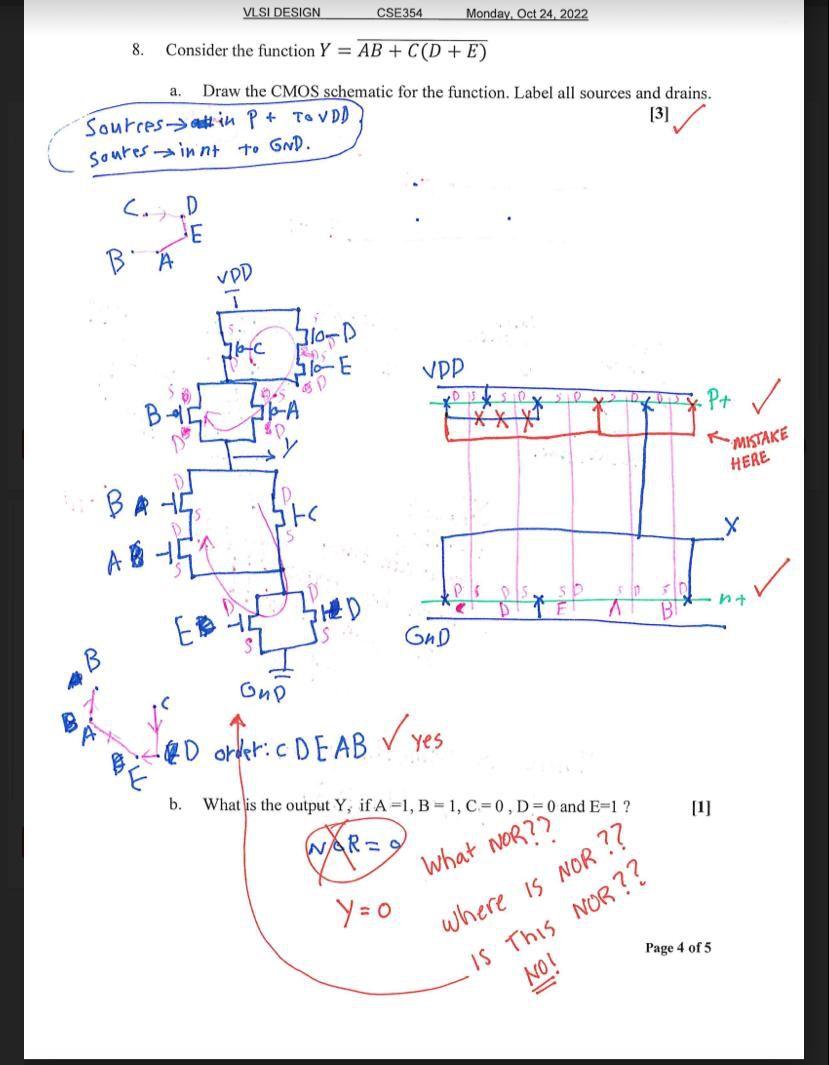 VLSI DESIGN CSE354 Monday, Oct 24, 2022
8. Consider the function Y = \overline{AB + C(D + E)}
a. Draw the CMOS schematic for the function. Label all sources and drains.
[3]
Sources → in P+ To VDD
Soures → in n+ to GND.
C D
E
B A
VDD
S
C
D
S D
E
D
S D
B
A
D
S D
Y
B
D
S
C
D
S
A
D
S
E
D
S
D
D
S
GND
VDP
D S S D S D S D D S
P+
MISTAKE
HERE
X
D S D S S D S D S D
C D E A B
n+
GND
B
B A
C
E
D order: C D E A B yes
b. What is the output Y, if A =1, B = 1, C = 0 , D = 0 and E=1 ? [1]
NOR = 0
What NOR??
Y = 0
Where IS NOR ??
IS THIS NOR??
NO!
Page 4 of 5